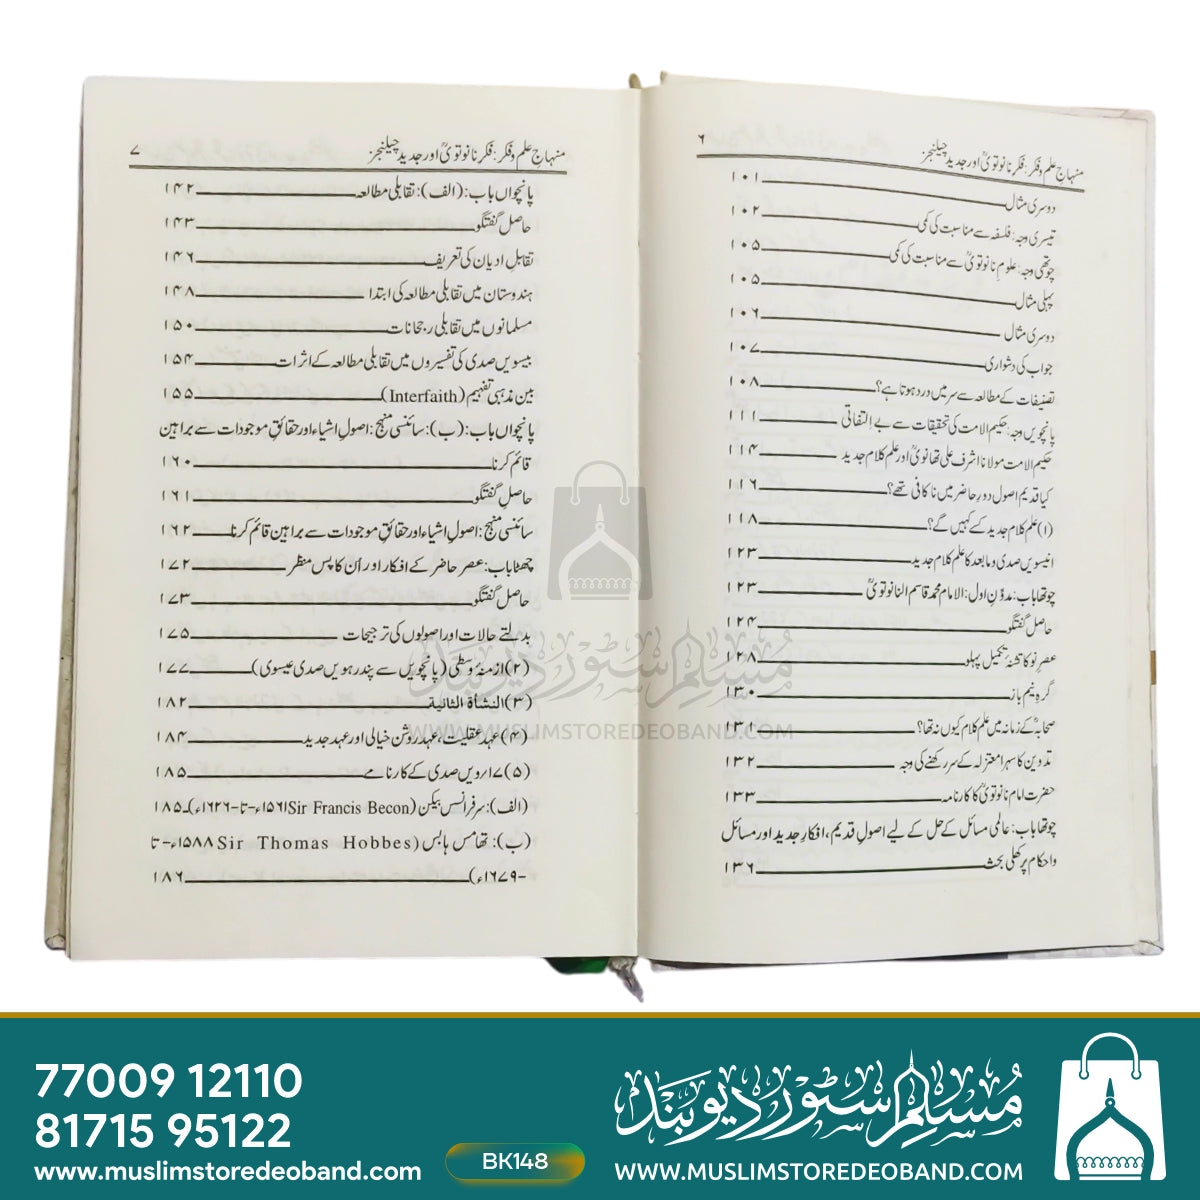 ۶
منہاجِ علم و فکر: فکر نانوتویؒ اور جدید چیلنجز
دوسری مثال ۱۰۱
تیسری وجہ: فلسفہ سے مناسبت کی کمی ۱۰۲
چوتھی وجہ: علومِ نانوتویؒ سے مناسبت کی کمی ۱۰۵
پہلی مثال ۱۰۵
دوسری مثال ۱۰۶
جواب کی دشواری ۱۰۷
تصنیفات کے مطالعہ سے سر میں درد ہوتا ہے؟ ۱۰۸
پانچویں وجہ: حکیم الامت کی تحقیقات سے بے التفاتی ۱۱۱
حکیم الامت مولانا اشرف علی تھانویؒ اور علم کلام جدید ۱۱۴
کیا قدیم اصول دورِ حاضر میں ناکافی تھے؟ ۱۱۶
(۱) علم کلام جدید کسے کہیں گے؟ ۱۱۸
انیسویں صدی و ما بعد کا علم کلام جدید ۱۲۳
چوتھا باب: مدوّنِ اول: الامام محمد قاسم النانوتویؒ ۱۲۳
حاصل گفتگو ۱۲۴
عصرِ نو کا تشنۂ تکمیل پہلو ۱۲۸
گرہِ نیم باز ۱۳۰
صحابہؓ کے زمانہ میں علم کلام کیوں نہ تھا؟ ۱۳۱
تدوین کا سہرا معتزلہ کے سر رکھنے کی وجہ ۱۳۲
حضرت امام نانوتویؒ کا کارنامہ ۱۳۳
چوتھا باب: عالمی مسائل کے حل کے لیے اصولِ قدیم، افکارِ جدید اور مسائل
و احکام پر کھلی بحث ۱۳۶
منہاجِ علم و فکر: فکر نانوتویؒ اور جدید چیلنجز ۷
پانچواں باب: (الف): تقابلی مطالعہ ۱۴۲
حاصل گفتگو ۱۴۳
تقابلِ ادیان کی تعریف ۱۴۶
ہندوستان میں تقابلی مطالعہ کی ابتدا ۱۴۸
مسلمانوں میں تقابلی رجحانات ۱۵۰
بیسویں صدی کی تفسیروں میں تقابلی مطالعہ کے اثرات ۱۵۴
بین مذہبی تفہیم (Interfaith) ۱۵۵
پانچواں باب: (ب): سائنسی منہج: اصولِ اشیاء اور حقائقِ موجودات سے براہین
قائم کرنا ۱۶۰
حاصلِ گفتگو ۱۶۱
سائنسی منہج: اصولِ اشیاء اور حقائقِ موجودات سے براہین قائم کرنا ۱۶۲
چھٹا باب: عصر حاضر کے افکار اور اُن کا پس منظر ۱۷۲
حاصل گفتگو ۱۷۳
بدلتے حالات اور اصولوں کی ترجیحات ۱۷۵
(۲) ازمنۂ وسطی (پانچویں سے پندرہویں صدی عیسوی) ۱۷۷
(۳) النشأة الثانية ۱۸۲
(۴) عہد عقلیت، عہد روشن خیالی اور عہد جدید ۱۸۴
(۵) ۱۷/ویں صدی کے کارنامے ۱۸۵
(الف): سر فرانسس بیکن (Sir Francis Becon ۱۵۶۱ء-تا-۱۶۲۶ء) ۱۸۵
(ب): تھامس ہابس (Sir Thomas Hobbes ۱۵۸۸ء-تا
-۱۶۷۹ء) ۱۸۶
مسلم سٹور دیوبند
WWW.MUSLIMSTOREDEOBAND.COM
77700912110
81715 95122
www.muslimstoredeoband.com
BK148
مسلم سٹور دیوبند
WWW.MUSLIMSTOREDEOBAND.COM